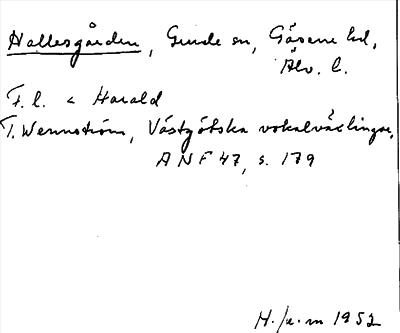 Hallesgården, Grude sn, Gäsene hd,
Älv. l.
F.l. < Harald
T. Wennström, Västgötska vokalväxlingar,
ANF 47, s. 179
1952